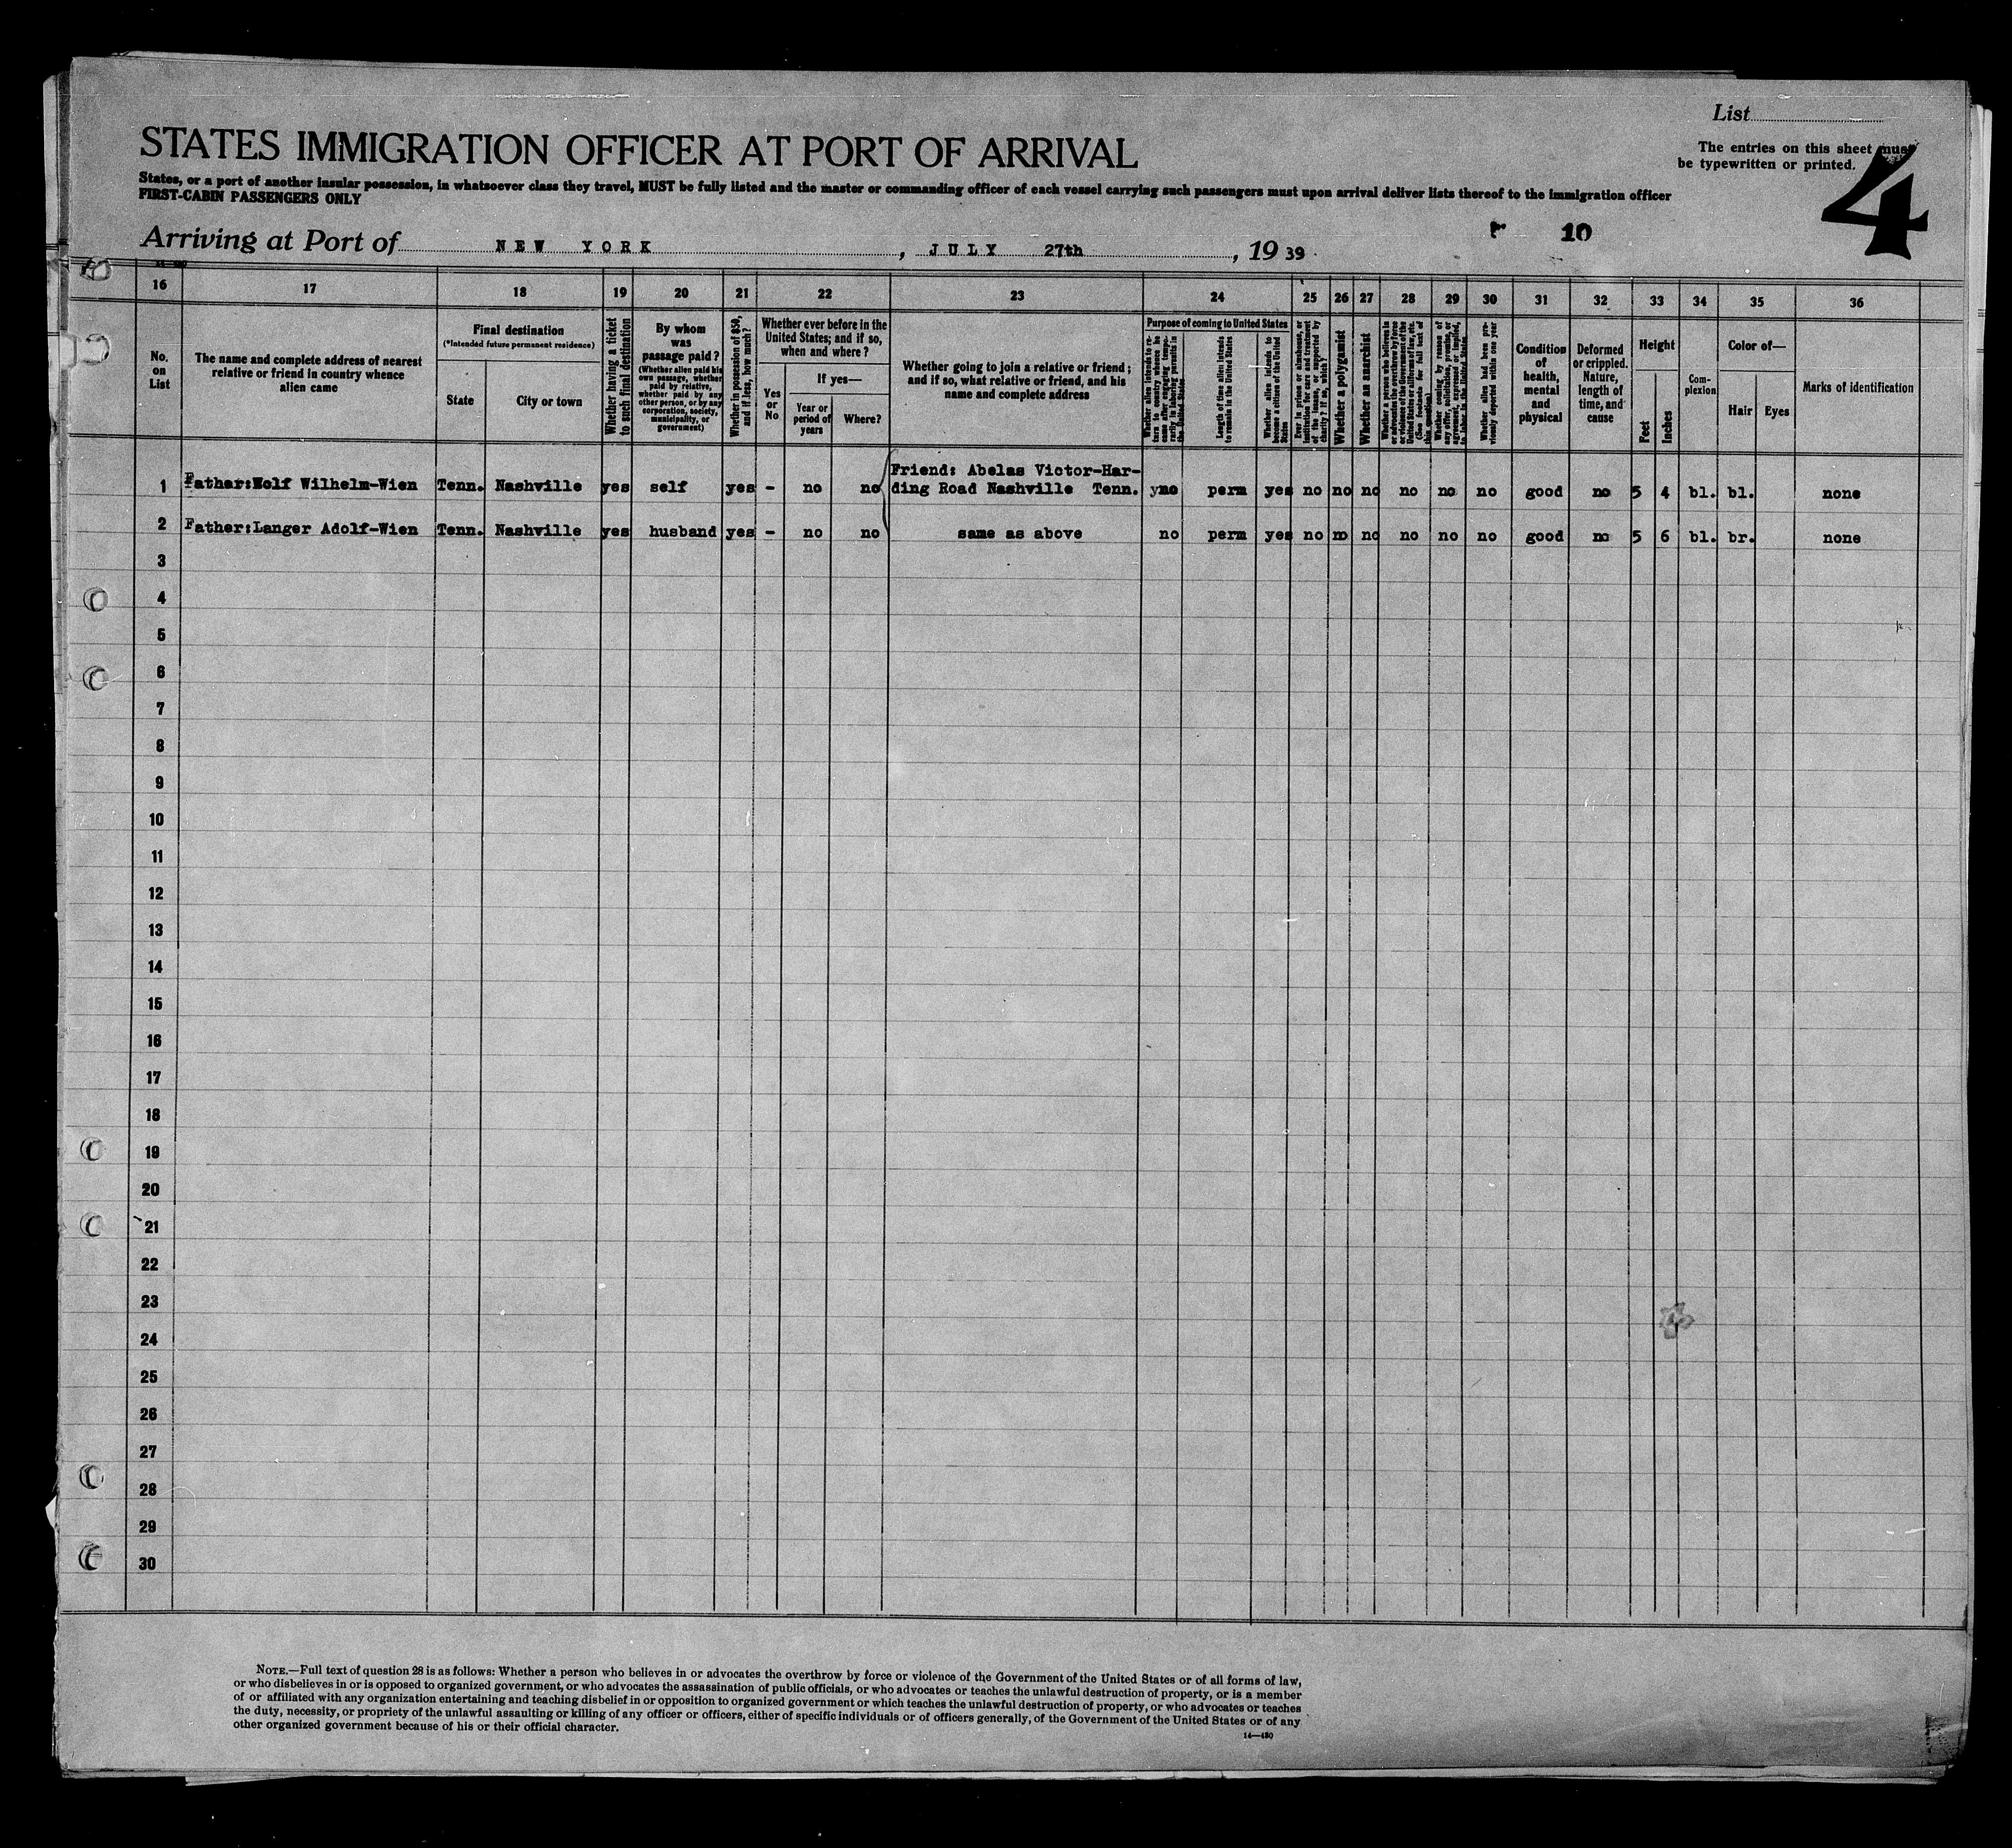 List
STATES IMMIGRATION OFFICER AT PORT OF ARRIVAL
The entries on this sheet must
be typewritten or printed.
4
States, or a port of another insular possession, in whatsoever class they travel, MUST be fully listed and the master or commanding officer of each vessel carrying such passengers must upon arrival deliver lists thereof to the immigration officer
FIRST-CABIN PASSENGERS ONLY
10
Arriving at Port of NEW YORK, JULY 27th, 19 39
16 17 18 19 20 21 22 23 24 25 26 27 28 29 30 31 32 33 34 35 36
No.
on
List
The name and complete address of nearest
relative or friend in country whence
alien came
Final destination
(*Intended future permanent residence)
State
City or town
Whether having a ticket
to such final destination
By whom
was
passage paid?
(Whether alien paid his
own passage, whether
paid by relative,
whether paid by any
other person, or by any
corporation, society,
municipality, or
government)
Whether in possession of $50,
and if less, how much?
Whether ever before in the
United States; and if so,
when and where?
Yes
or
No
If yes—
Year or
period of
years
Where?
Whether going to join a relative or friend;
and if so, what relative or friend, and his
name and complete address
Purpose of coming to United States
Whether alien intends to re-
turn to country whence he
came after engaging tempo-
rarily in laboring pursuits in
the United States
Length of time alien intends
to remain in the United States
Whether alien intends to
become a citizen of the United
States
Ever in prison or almshouse, or
institution for care and treatment
of the insane, or supported by
charity? If so, which?
Whether a polygamist
Whether an anarchist
Whether a person who believes in
or advocates the overthrow by force
or violence of the Government of the
United States or all forms of law, etc.
(See footnote for full text of
this question)
Whether coming by reason of
any offer, solicitation, promise, or
agreement, expressed or implied,
to labor in the United States
Whether alien had been pre-
viously deported within one year
Condition
of
health,
mental
and
physical
Deformed
or crippled.
Nature,
length of
time, and
cause
Height
Feet
Inches
Com-
plexion
Color of—
Hair
Eyes
Marks of identification
Friend: Abelas Victor-Har-
1 Father:Wolf Wilhelm-Wien Tenn. Nashville yes self yes - no no ding Road Nashville Tenn. no perm yes no no no no no no good no 5 4 bl. bl. none
2 Father:Langer Adolf-Wien Tenn. Nashville yes husband yes - no no same as above no perm yes no no no no no no good no 5 6 bl. br. none
3
4
5
6
7
8
9
10
11
12
13
14
15
16
17
18
19
20
21
22
23
24
25
26
27
28
29
30
NOTE.—Full text of question 28 is as follows: Whether a person who believes in or advocates the overthrow by force or violence of the Government of the United States or of all forms of law,
or who disbelieves in or is opposed to organized government, or who advocates the assassination of public officials, or who advocates or teaches the unlawful destruction of property, or is a member
of or affiliated with any organization entertaining and teaching disbelief in or opposition to organized government or which teaches the unlawful destruction of property, or who advocates or teaches
the duty, necessity, or propriety of the unlawful assaulting or killing of any officer or officers, either of specific individuals or of officers generally, of the Government of the United States or of any
other organized government because of his or their official character.
14—480